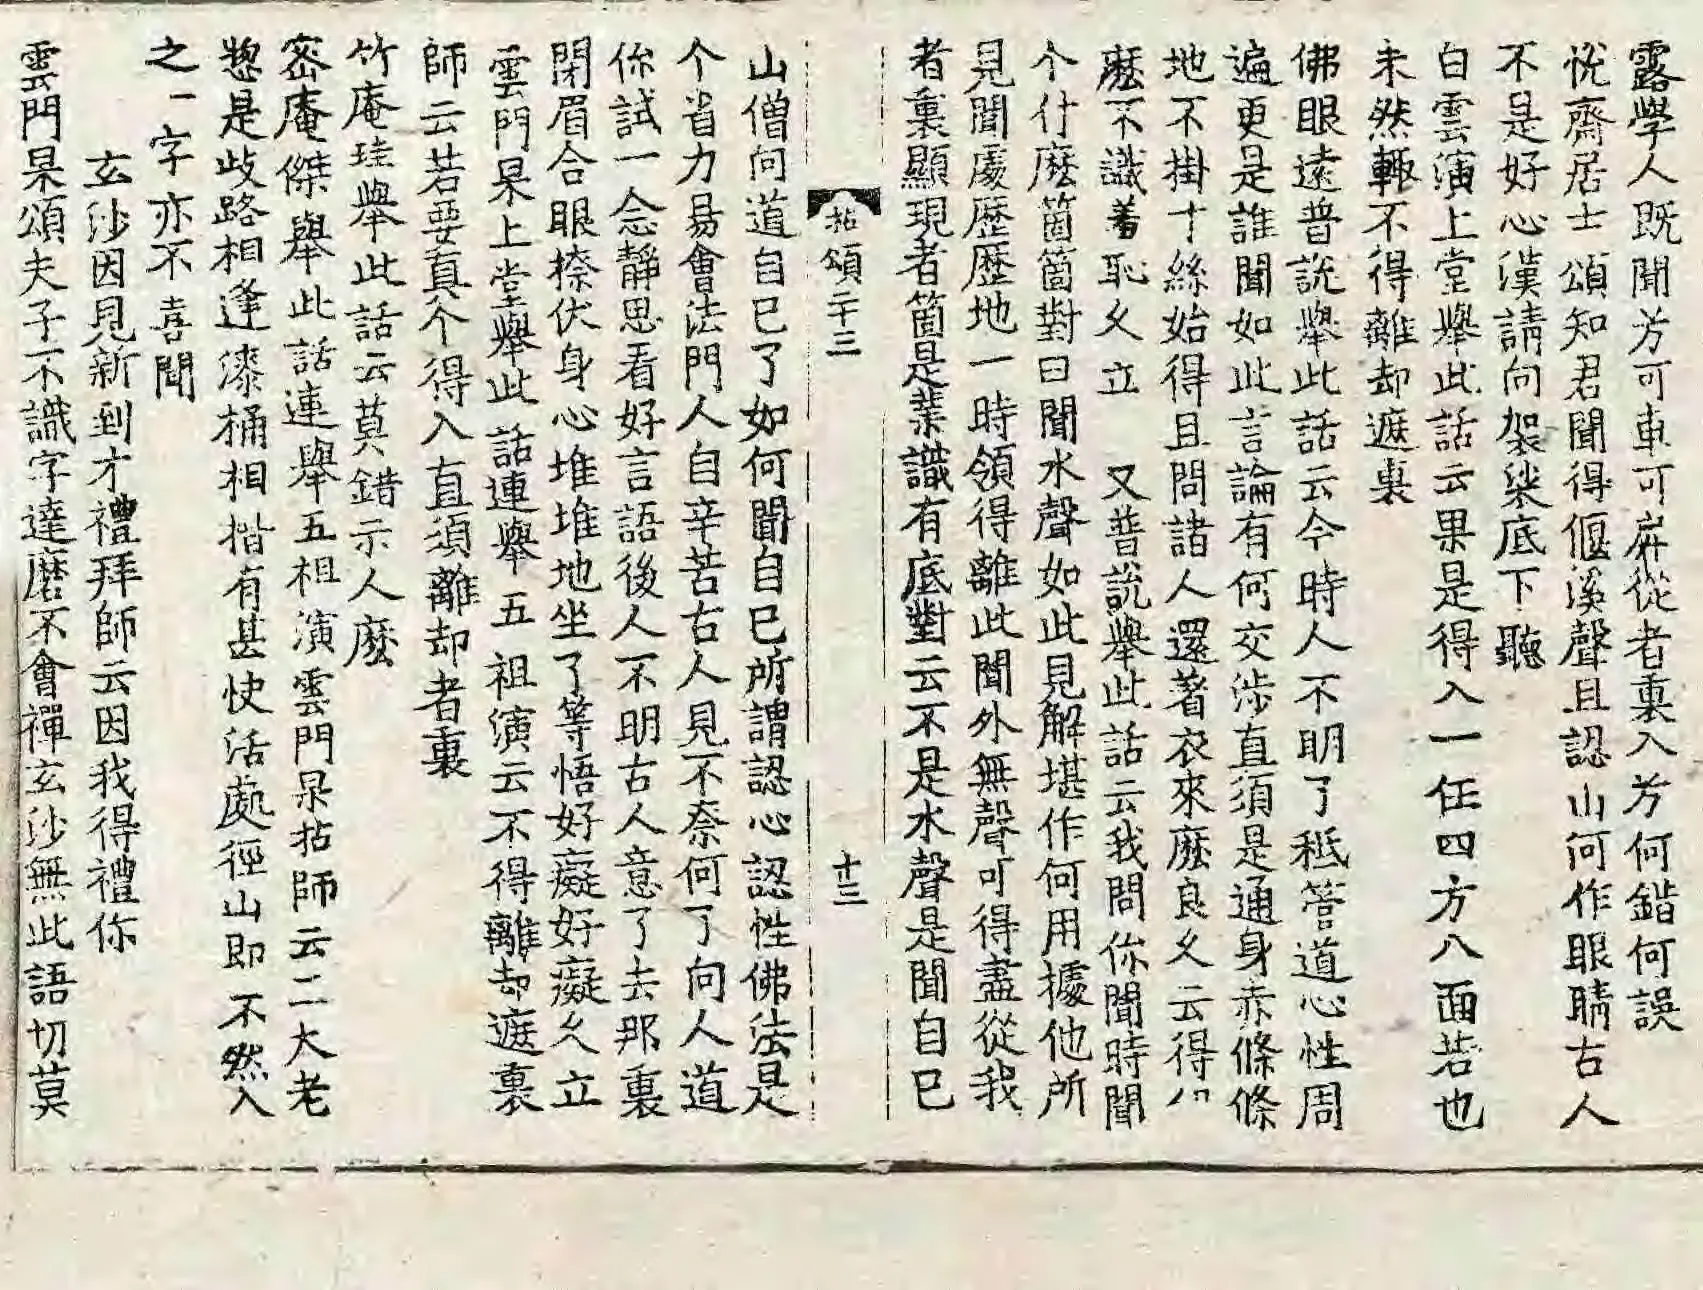 露學人既聞芳可車可屛從者裏入芳何鍇何誤
悅齋居士頌知君聞得偃溪聲且認山河作眼睛古人
不是好心漢請向袈裟底下聽
白雲演上堂擧此話云果是得入一任四方八面若也
未然輙不得離却遮裏
佛眼遠普說擧此話云今時人不明了秪管道心性周
遍更是誰聞如此言論有何交涉直須是通身赤條條
地不掛寸絲始得且問諸人還著衣來麽良久云得
麽不識著恥久立　又普說擧此話云我問你聞時聞
个什麽箇箇對曰聞水聲如此見解堪作何用據他所
見聞處歷歷地一時領得離此聞外無聲可得盡從我
者裏顯現者箇是業識有底對云不是水聲是聞自己
拈頌二十三　十三
山僧向道自己了如何聞自己所謂認心認性佛法是
个省力易會法門人自辛苦古人見不奈何了向人道
你試一念靜思看好言語後人不明古人意了去那裏
閉眉合眼捺伏身心堆堆地坐了等悟好癡好癡久立
雲門杲上堂擧此話連擧五祖演云不得離却遮裏
師云若要真个得入直須離却者裏
竹庵珪擧此話云莫錯示人麽
密庵傑擧此話連擧五祖演雲門杲拈師云二大老
惣是歧路相逢漆桶相揩有甚快活處徑山卽不然入
之一字亦不喜聞
玄沙因見新到才禮拜師云因我得禮你
雲門杲頌夫子不識字達磨不會禪玄沙無此語切莫